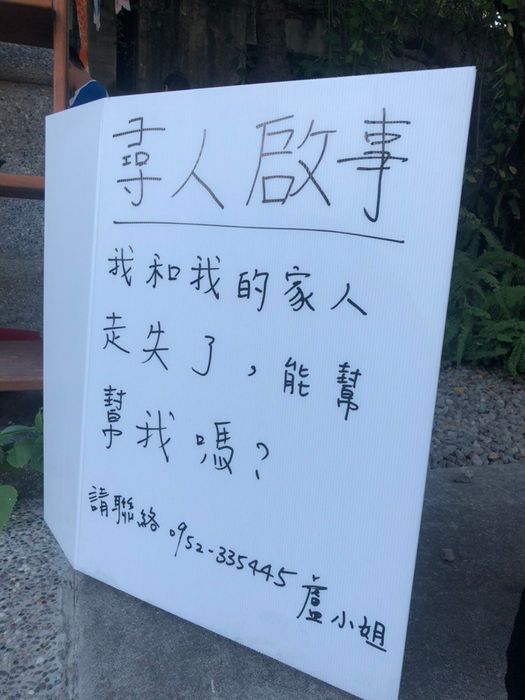 尋人啟事
我和我的家人
走失了，能幫
幫我嗎？
請聯絡 0952-335445 盧小姐